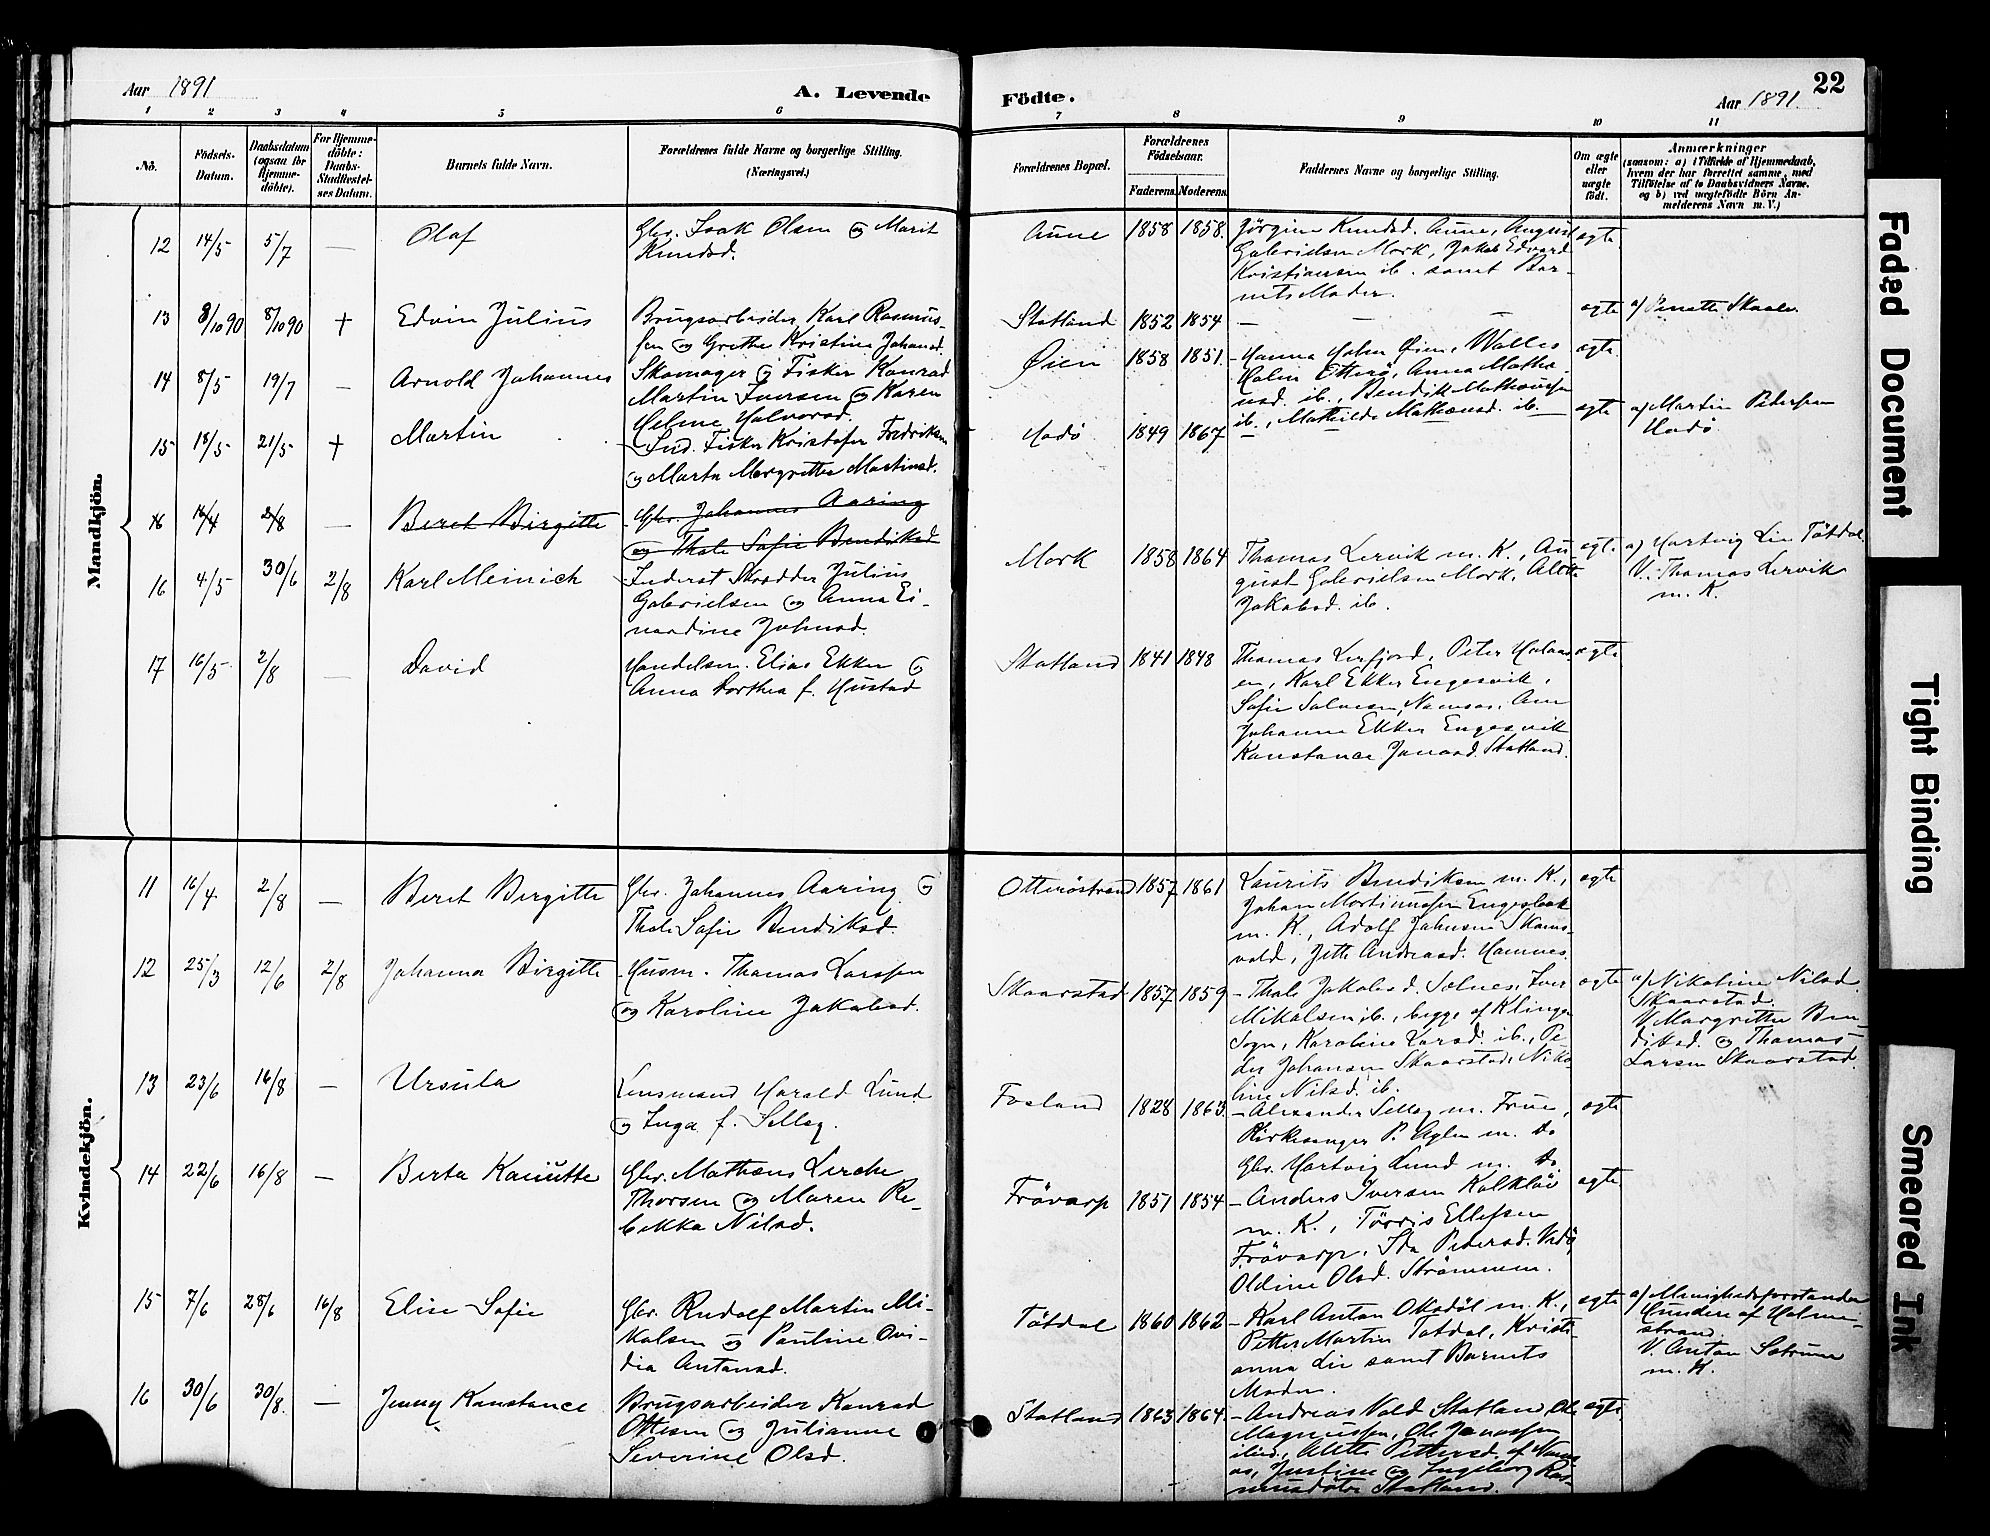 Aar 1891
A. Levende
Födte.
Aar 1891.
22
1 2 3 4 5 6 7 8 9 10 11
No.
Födsels-
Datum.
Daabsdatum
(ogsaa for
Hjemme-
döbte).
For Hjemme-
döbte:
Daabs-
Stadfæstel-
ses Datum.
Barnets fulde Navn.
Forældrenes fulde Navne og borgerlige Stilling.
(Næringsvei.)
Forældrenes Bopæl.
Forældrenes
Födselsaar.
Faderens. Moderens.
Faddernes Navne og borgerlige Stilling.
Om ægte
eller
uægte
födt.
Anmærkninger
(saasom: a) i Tilfælde af Hjemmedaab,
hvem der har forrettet samme, med
Tilföielse af to Daabsvidners Navne,
og b) ved uægtefödte Börn An-
melderens Navn m. V.)
Mandkjön.
12 14/5 5/7 — Olaf
Gbr. Isak Olsen og Marit
Knudsd.
Aune 1858 1858.
Jörgine Knudsd. Aune, August
Gabrielsen Mork, Jakob Edvard
Kristiansen ib. samt Bar-
nets Moder.
ægte
13 8/10 90 8/10 90 + Edvin Julius
Brugsarbeider Karl Rasmus-
sen og Grethe Kristine Johansd.
Statland 1852 1854 — — —
ægte a/ Penette Skaale.
14 8/5 19/7 — Arnold Johannes
Skomager og Fisker Konrad
Martin Iversen og Karen
Heline Halvorsd.
Øien 1858 1851.
Hanna Holm Øien,
Holm Otterö, Anna Mathe-
usd. ib., Bendik Matheussen
ib., Mathilde Matheusd. ib.
ægte
15 18/5 21/5 + Martin
Ind. Fisker Kristofer Fredriksen
og Marta Margrethe Martinsd.
Hodö 1849 1867 — — —
ægte a/ Martin Pedersen
Hodö
16 16/4 2/8 — Beret Birgitte
Gbr. Johannes Aaring
og Thale Sofie Bendiksd
16 4/5 30/6 2/8 Karl Meinich
Inderst Skrædder Julius
Gabrielsen og Anna Ei-
nardine Johnsd.
Mork 1858 1864
Thomas Lervik m. K., Au-
gust Gabrielsen Mork, Alette
Jakobsd. ib.
ægte a) Hartvig Lie Tötdal.
V. Thomas Lervik
m. K.
17 16/5 2/8 — David
Handelsm. Elias Ekker og
Anna Dorthea f. Hustad
Statland 1841 1848
Thomas Lerfjord, Peter Holaas-
en, Karl Ekker Engesvik,
Sofie Salvesen, Namsos, Ane
Johanna Ekker Engesvik
Konstance Jonasd. Statland.
ægte
Kvindekjön.
11 16/4 2/8 — Beret Birgitte
Gbr. Johannes Aaring og
Thale Sofie Bendiksd.
Otteröstrand 1857 1861
Laurits Bendiksen m. K.,
Johan Mortinussen Engesbak
m. K., Adolf Johnsen Skams-
vold, Jette Andreasd. Hamnes.
ægte
12 25/3 12/6 2/8 Johanna Birgitte
Husm. Thomas Larssen
og Karoline Jakobsd.
Skaarstad 1857 1859
Thale Jakobsd. Solnes, Iver
Mikalsen ib., begge af Klinge
Sogn, Karoline Larsd. ib., Pe-
der Johansen Skaarstad, Niko-
line Nilsd. ib.
ægte a/ Nikoline Nilsd.
Skaarstad
V. Margrethe Ben-
diksd. og Thomas
Larsen Skaarstad.
13 23/6 16/8 — Ursula
Lensmand Harald Lund
og Inga f. Selleg.
Fosland 1828 1863
Alexander Selleg m. Frue,
Kirkesanger P. Aglen m. do
Gbr. Hartvig Lund m. do
ægte
14 22/6 16/8 — Berta Kanutte
Gbr. Mathæus Lerche
Thorsen og Maren Re-
bekka Nilsd.
Frövarp 1851 1854
Anders Iversen Kalklöv
m. K., Törris Ellefsen
Frövarp, Ida Pedersd. Vedö,
Oldine Olsd. Strömmen.
ægte
15 7/6 28/6 16/8 Elise Sofie
Gbr. Rudolf Martin Mi-
kalsen og Pauline Ovi-
dia Antonsd.
Tötdal 1860 1862
Karl Anton m. K.,
Petter Martin Tötdal, Kristi-
anna Lie samt Barnets
Moder.
ægte a/ Menighedsforstander
Gundere af Holme-
strand.
V. Anton Sætrum
m. K.
16 30/6 30/8. — Jenny Konstance
Brugsarbeider Konrad
Ottesen og Julianne
Severine Olsd.
Statland 1863 1864.
Andreas Vold Statland, Ole
Magnussen, Ole Jonassen
ibid., Alette Pettersd. af Nams-
os, Justine og Ingeborg Ras-
musdötre Statland.
ægte
Faded Document
Tight Binding
Smeared Ink